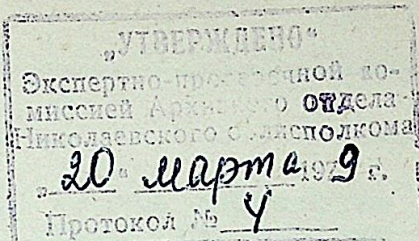 „УТВЕРЖДЕНО“
Экспертно-проверочной ко-
миссией Архивного отдела
Николаевского облисполкома
„20“ марта 1979 г.
Протокол № 4